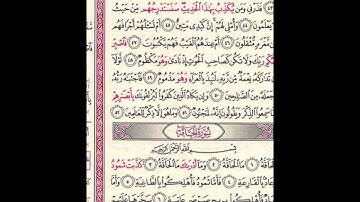 ٤٣ فَذَرْنِي وَمَن يُكَذِّبُ بِهَٰذَا ٱلْحَدِيثِ سَنَسْتَدْرِجُهُم مِّنْ حَيْثُ
يَعْلَمُونَ ٤٤ وَأُمْلِي لَهُمْ إِنَّ كَيْدِي مَتِينٌ ٤٥ أَمْ تَسْـَٔلُهُمْ أَجْرًا فَهُم
مَّغْرَمٍ مُّثْقَلُونَ ٤٦ أَمْ عِندَهُمُ ٱلْغَيْبُ فَهُمْ يَكْتُبُونَ ٤٧ فَٱصْبِرْ
رَبِّكَ وَلَا تَكُن كَصَاحِبِ ٱلْحُوتِ إِذْ نَادَىٰ وَهُوَ مَكْظُومٌ ٤٨ لَّوْلَا
تَدَٰرَكَهُۥ نِعْمَةٌ مِّن رَّبِّهِۦ لَنُبِذَ بِٱلْعَرَآءِ وَهُوَ مَذْمُومٌ ٤٩ فَٱجْتَبَٰهُ رَبُّهُۥ
مِنَ ٱلصَّٰلِحِينَ ٥٠ وَإِن يَكَادُ ٱلَّذِينَ كَفَرُوا۟ لَيُزْلِقُونَكَ بِأَبْصَٰرِهِمْ
سَمِعُوا۟ ٱلذِّكْرَ وَيَقُولُونَ إِنَّهُۥ لَمَجْنُونٌ ٥١ وَمَا هُوَ إِلَّا ذِكْرٌ لِّلْعَٰلَمِينَ ٥٢
سُورَةُ الحَاقَّةِ
بِسْمِ ٱللَّهِ ٱلرَّحْمَٰنِ ٱلرَّحِيمِ
١ مَا ٱلْحَآقَّةُ ٢ وَمَآ أَدْرَىٰكَ مَا ٱلْحَآقَّةُ ٣ كَذَّبَتْ ثَمُودُ
بِٱلْقَارِعَةِ ٤ فَأَمَّا ثَمُودُ فَأُهْلِكُوا۟ بِٱلطَّاغِيَةِ ٥ وَأَمَّا
فَأُهْلِكُوا۟ بِرِيحٍ صَرْصَرٍ عَاتِيَةٍ